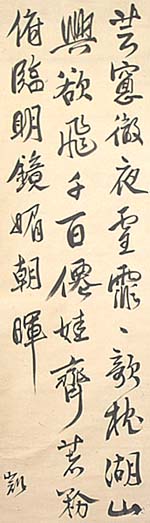 芸窓徹夜雪霏ヽ欹枕湖山
興欲飛千百僊娃齊著粉
俯臨明鏡媚朝暉